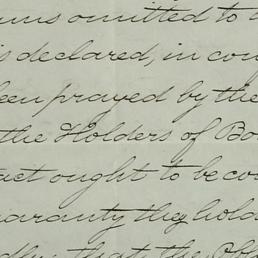 omitted to
is declared, in con
been prayed by the
the Holders of Bo
act ought to be co
aranty they hold
that the Obl